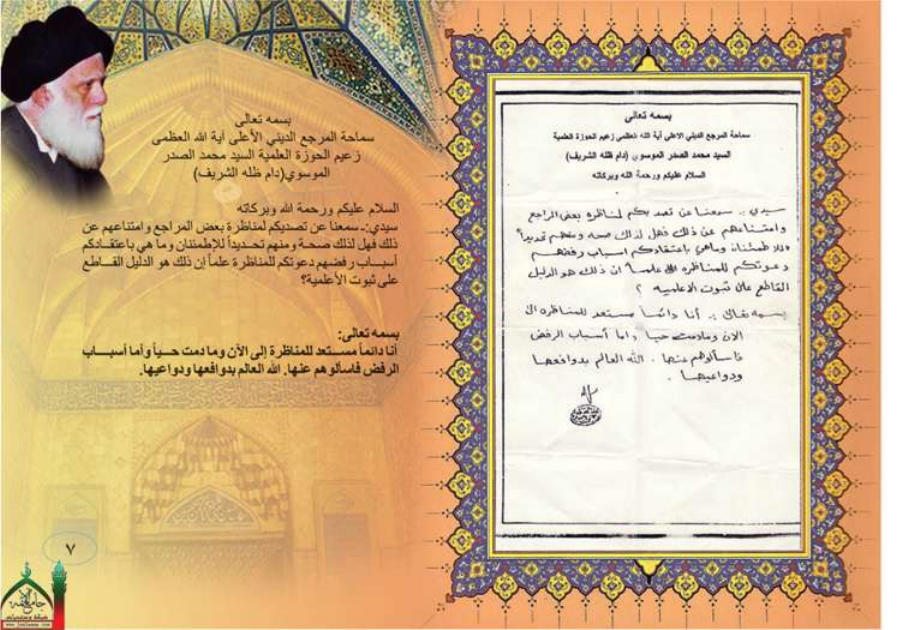 بسمه تعالى
سماحة المرجع الديني الأعلى آية الله العظمى
زعيم الحوزة العلمية السيد محمد الصدر
الموسوي(دام ظله الشريف)
السلام عليكم ورحمة الله وبركاته
سيدي:ـ سمعنا عن تصديكم لمناظرة بعض المراجع وامتناعهم عن
ذلك فهل لذلك صحة ومنهم تحديداً للإطمئنان وما هي باعتقادكم
أسباب رفضهم دعوتكم للمناظرة علماً إن ذلك هو الدليل القاطع
على ثبوت الأعلمية؟
بسمه تعالى:
أنا دائماً مستعد للمناظرة إلى الآن وما دمت حياً وأما أسباب
الرفض فاسألوهم عنها. الله العالم بدوافعها ودواعيها.
٧
بسمه تعالى
سماحة المرجع الديني الاعلى آية الله العظمى زعيم الحوزة العلمية
السيد محمد الصدر الموسوي (دام ظله الشريف)
السلام عليكم ورحمة الله وبركاته
سيدي :ـ سمعنا عن تصديكم لمناظرة بعض المراجع
وامتناعهم عن ذلك فهل لذلك صحه ومنهم تحديداً
للاطمئنان وماهي باعتقادكم اسباب رفضهم
دعوتكم للمناظره علماً ان ذلك هو الدليل
القاطع على ثبوت الاعلميه ؟
بسمه تعالى :ـ أنا دائماً مستعد للمناظره الى
الان ومادمت حيا واما أسباب الرفض
فاسألوهم عنها . الله العالم بدوافعها
ودواعيها .
www.jaalama.com